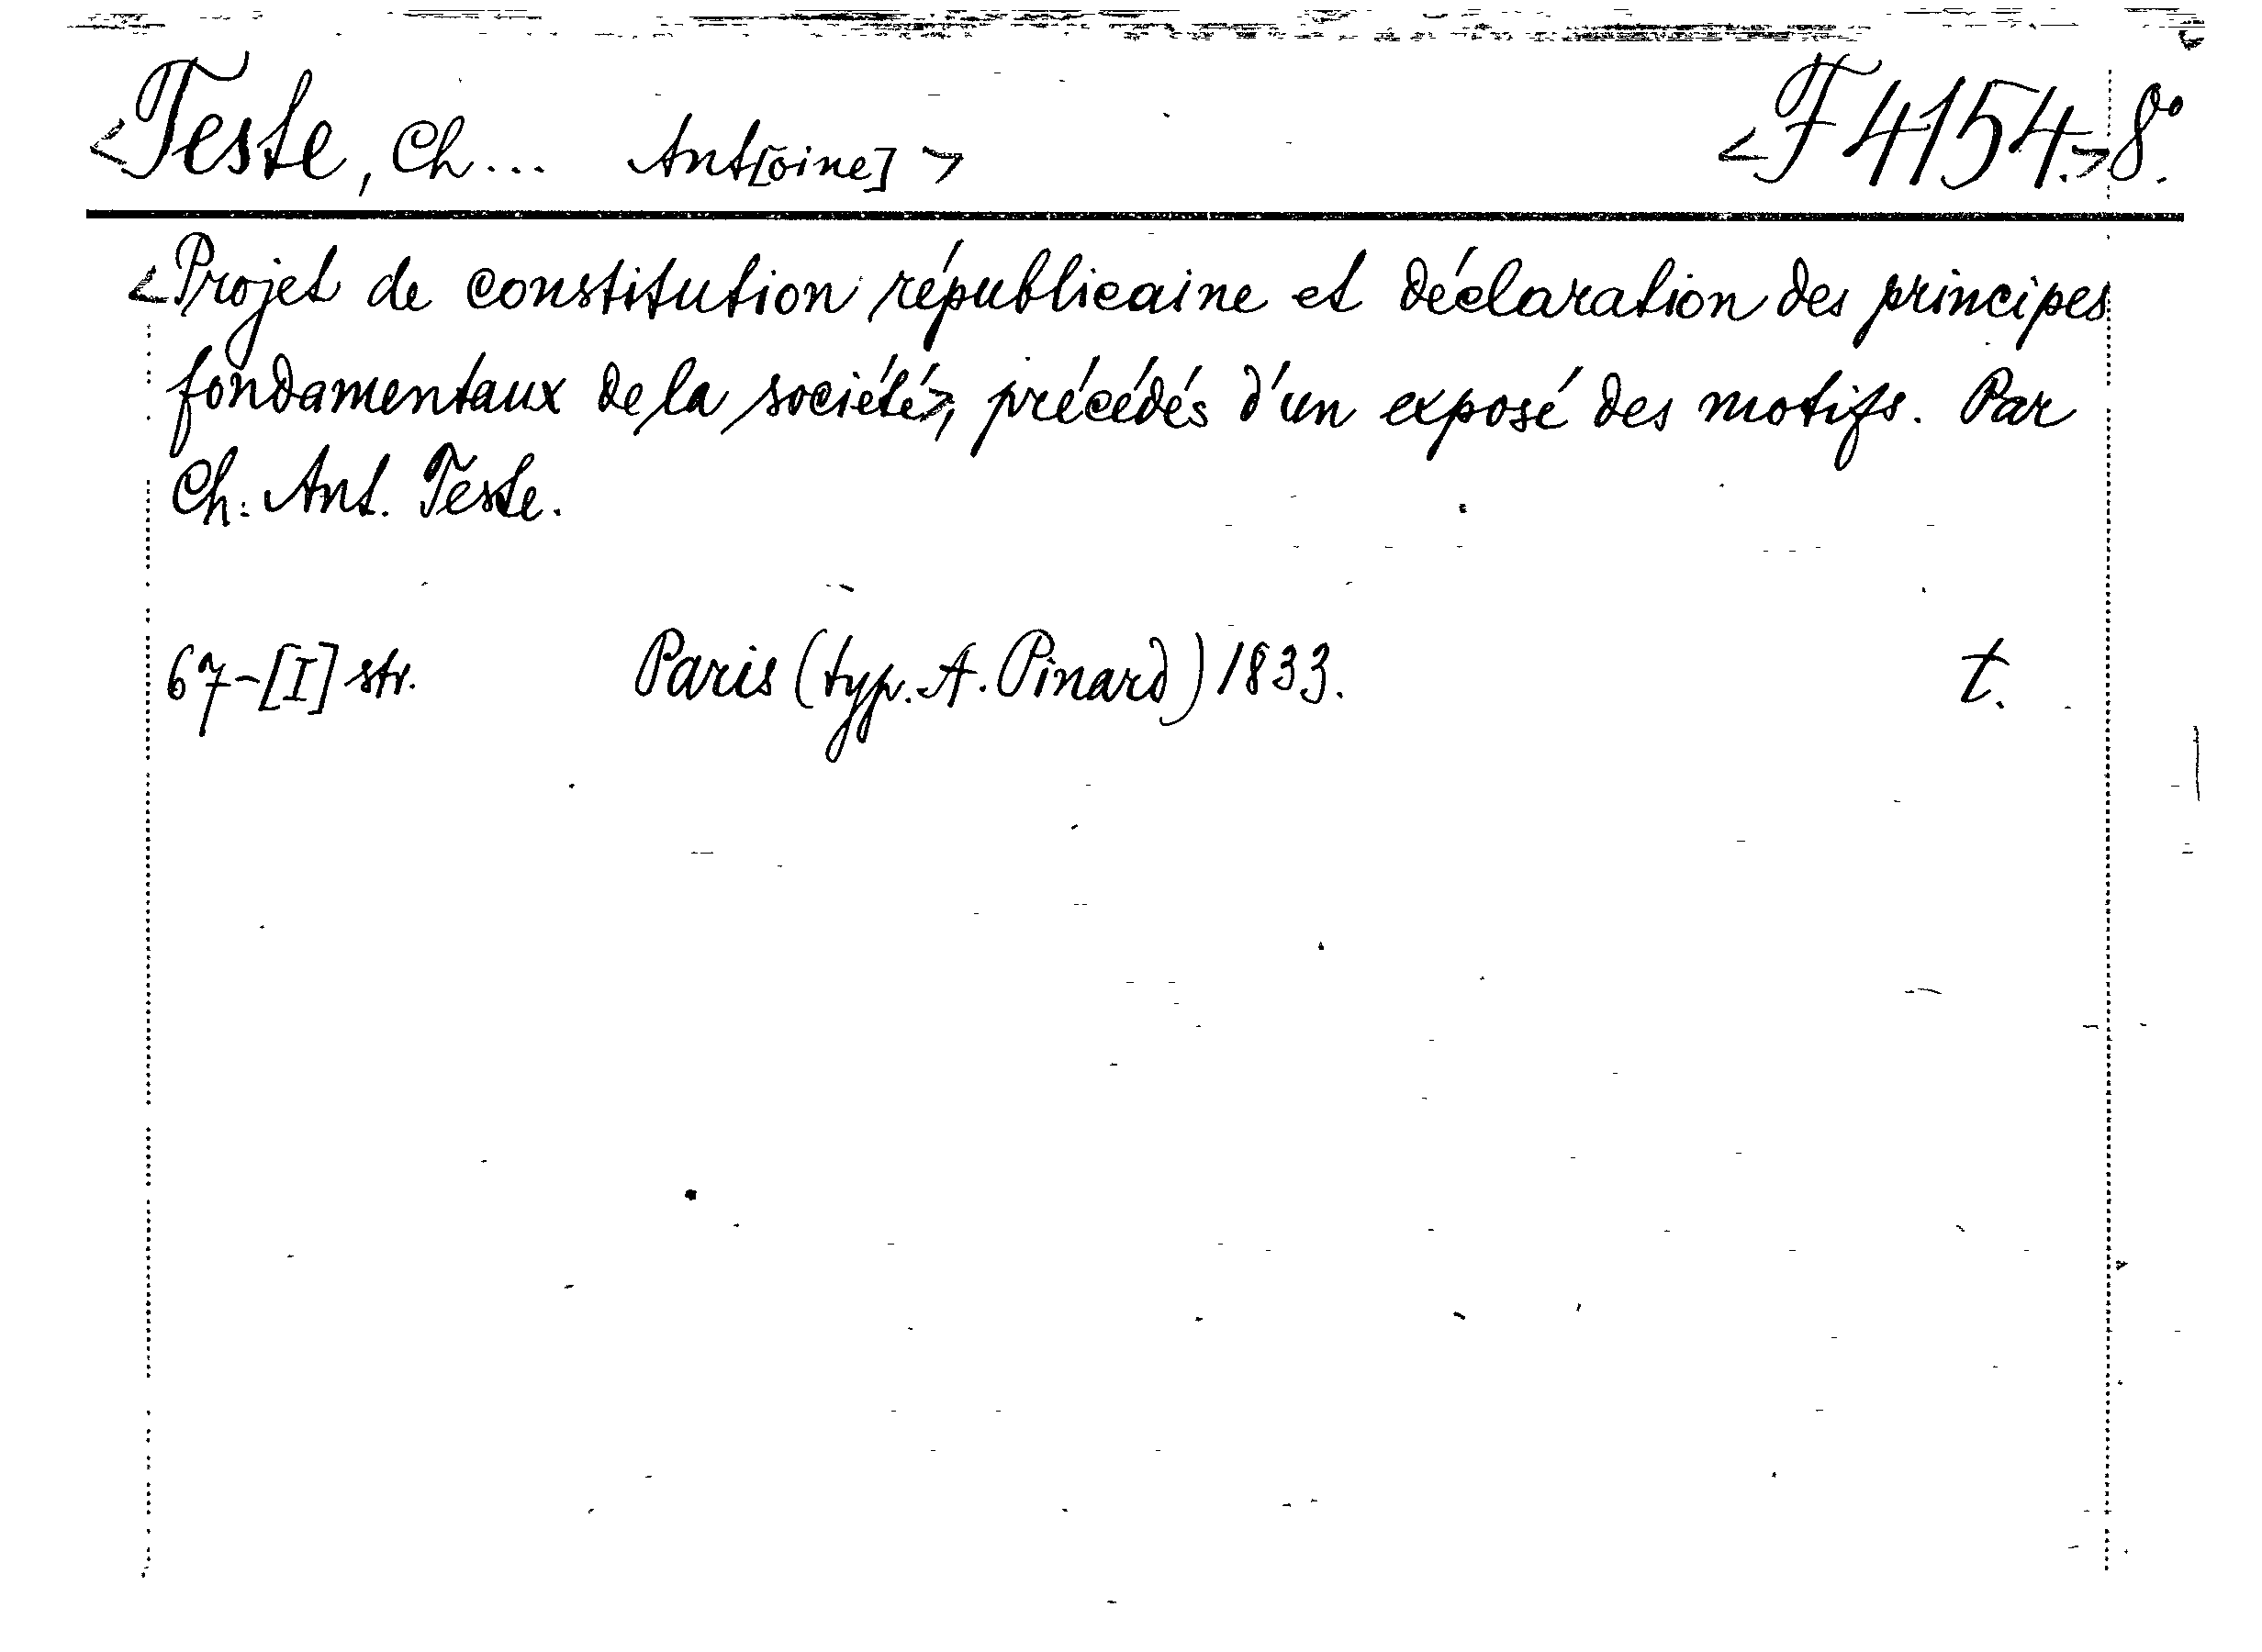 <Teste, Ch... Ant[oine]> <F 4154.> 8°.
<Projet de constitution républicaine et déclaration des principes
fondamentaux de la société>, précédés d'un exposé des motifs. Par
Ch. Ant. Teste.
67-[I] str. Paris (typ. A. Pinard) 1833. t.